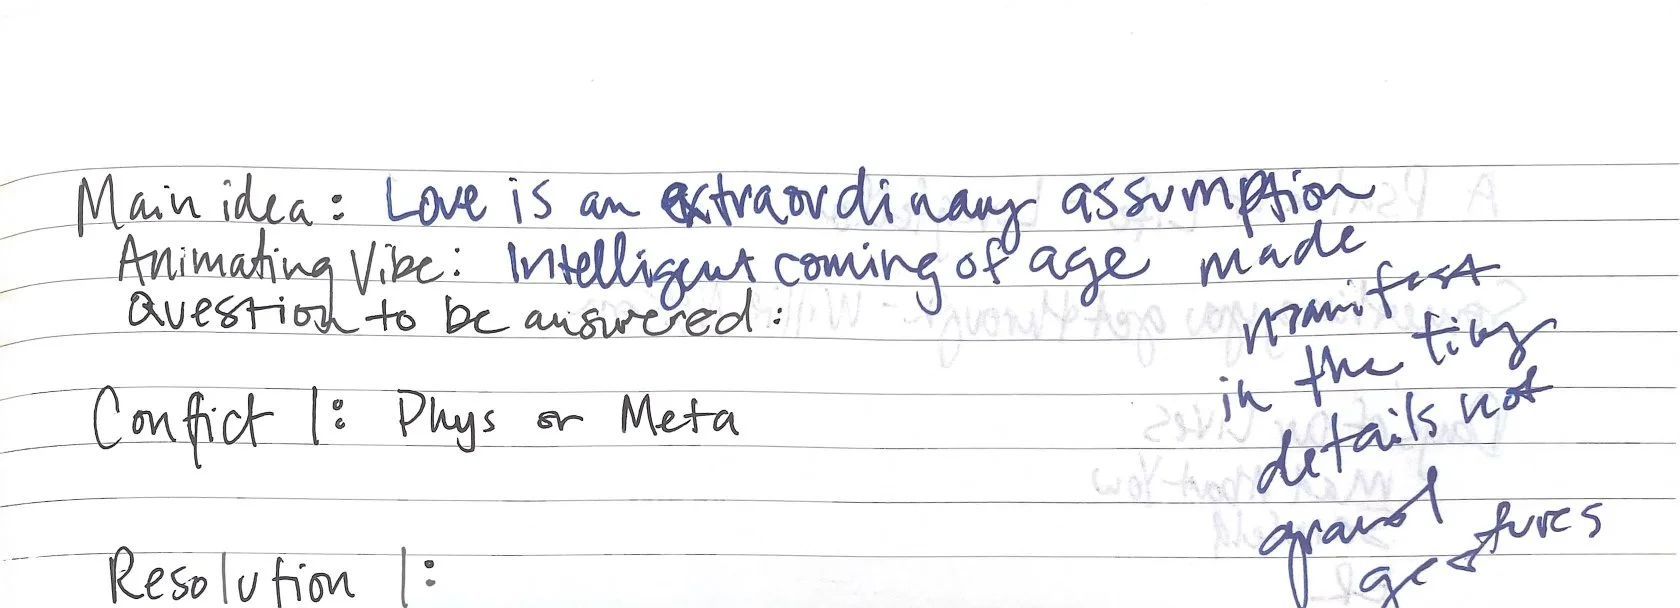 Main idea: Love is an extraordinary assumption
Animating Vibe: Intelligent coming of age made
Question to be answered:
manifest
in the tiny
details not
grand
gestures
Confict 1: Phys or Meta
Resolution 1: